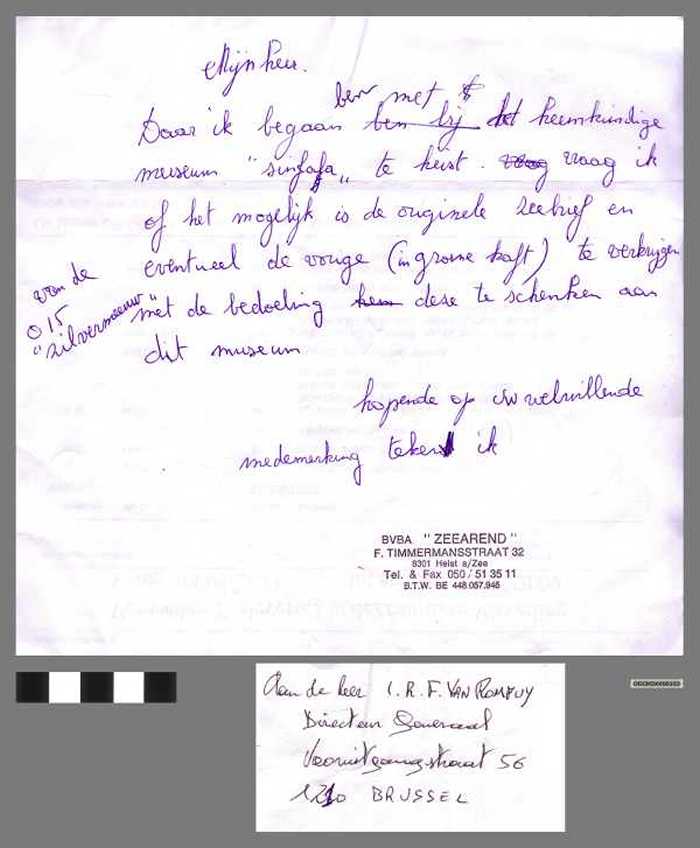 Mijnheer.
ben met
Daar ik begaan ben bij het heemkundige
museum "sinfala" te heist. vraag vraag ik
of het mogelijk is de originele zeebrief en
eventueel de vorige (in groene kaft) te verkrijgen
van de
O 15
"zilvermeeuw"
met de bedoeling hem dese te schenken aan
dit museum
hopende op uw welwillende
medewerking teken ik
BVBA "ZEEAREND"
F. TIMMERMANSSTRAAT 32
8301 Heist a/Zee
Tel. & Fax 050/51 35 11
B.T.W. BE 448.057.945
Aan de heer I.R.F. VAN ROMPUY
Directeur Generaal
Vooruitgangstraat 56
1210 BRUSSEL